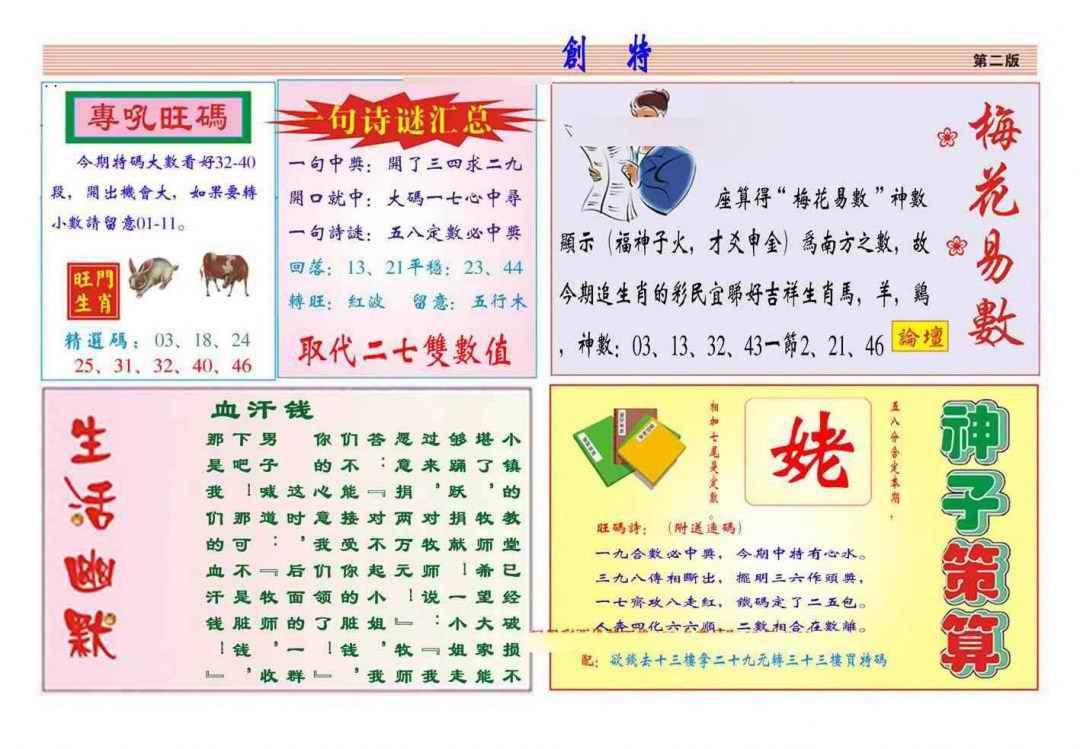 創 特
第二版
專吼旺碼
今期特碼大數看好32-40
段，開出機會大，如果要轉
小數請留意01-11。
旺門
生肖
精選碼：03、18、24
25、31、32、40、46
一句诗谜汇总
一句中獎：開了三四求二九
開口就中：大碼一七心中尋
一句詩謎：五八定數必中獎
回落：13、21平穩：23、44
轉旺：紅波 留意：五行木
取代二七雙數值
梅花易數
座算得“梅花易數”神數
顯示（福神子火，才爻申金）爲南方之數，故
今期追生肖的彩民宜睇好吉祥生肖馬，羊，鷄
，神數：03、13、32、43一節2、21、46
論壇
生活幽默
血汗钱
小镇的教堂已经破损不
堪了，牧师希望大家能
够踊跃捐献！一小姐走
过来，对牧师说：『我
愿意捐两万元！』牧师
答：『对不起小姐，我
们不能接受你的脏钱，
你的心意我们领了！』
这时，后面的一群
男子喊道：『牧师，收
下吧！那可不是脏钱，
那是我们的血汗钱！』
神子策算
五八分合定本期，
姥
相加七尾是定數。
旺碼詩：（附送連碼）
一九合數必中獎，今期中特有心水。
三九八傳相斷出，擺明三六作頭獎，
一七齊攻八走紅，鐵碼定了二五包。
人奔四化六六順，二數相合在數離。
配：欲錢去十三樓拿二十九元轉三十三樓買特碼